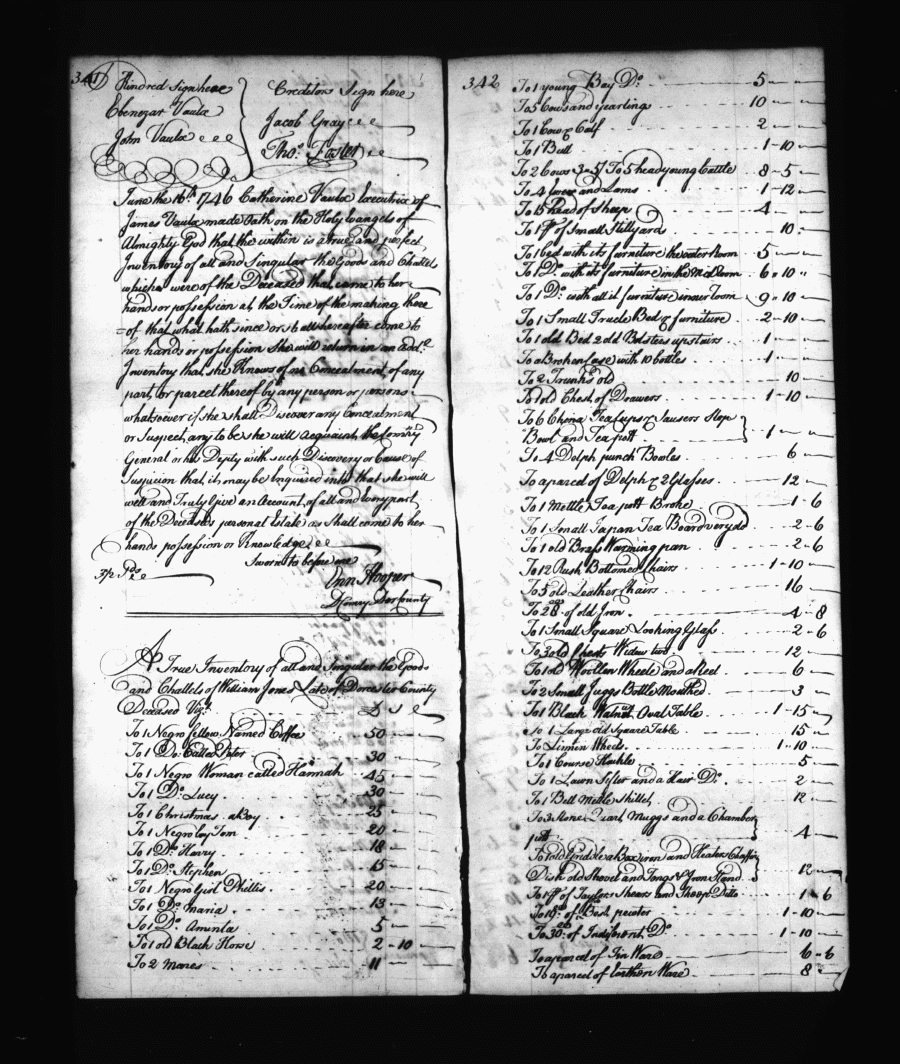 341
Kindred Sign here
Ebenezar Vaulx
John Vaulx
Creditors Sign here
Jacob Gray
Tho.s Foster
June the 16th 1746 Catherine Vaulx Executrix of
James Vaulx made Oath on the Holy Evangels of
Almighty God that the within is a true and perfect
Inventory of all and Singular the Goods and Chattels
which were of the Deceased that came to her
hands or possession at the Time of the making there
=of that what hath since or shall hereafter come to
her hands or possession She will return in an add.l
Inventory that she Knows of no Concealment of any
part, or parcel thereof by any person or persons
whatsoever if she shall Discover any Concealment
or Suspect any to be she will acquaint the Com'ry
General or his Deputy with such Discovery or Cause of
Suspicion that it may be Inquired into that she will
well and Truly Give an Account, of all and Every part
of the Deceaseds personal Estate as Shall come to her
hands possession or Knowledge
Sworn to before me
Enn.ls Hooper
D Comry Dor County
A True Inventory of all and Singular the Goods
and Chattels of William Jones Late of Dorcester County
Deceased Viz.t £ S
To 1 Negro fellow Named Coffee 50
To 1 Do. Called Peter 30
To 1 Negro Woman called Hannah 45
To 1 Do. Lucy 30
To 1 Christmas a Boy 25
To 1 Negro boy Tom 20
To 1 Do. Harry 18
To 1 Do. Stephen 15
To 1 Negro Girl Phillis 20
To 1 Do. Maria 13
To 1 Do. Aminta 5
To 1 old Black Horse 2 - 10
To 2 Mares 11
342
To 1 young Bay Do. 5
To 5 Cows and yearling 10
To 1 Cow & Calf 2
To 1 Bull 1 - 10
To 2 Cows 3 - 5 / To 5 head young Cattle 8 - 5
To 4 Ewes and Lams 1 - 12
To 15 head of Sheep 4
To 1 pr. of Small Stillyards 10
To 1 bed with its furniture the outer Room 5
To 1 Do. with its furniture in the Mid Room 6 - 10
To 1 Do. with all it furniture inner Room 9 - 10
To 1 Small Trucle Bed & furniture 2 - 10
To 1 old Bed 2 old Bolsters upstairs 1
To a Broken Case with 10 bottles 1
To 2 Trunks old 10
To 1 old Chest of Drawers 1 - 10
To 6 China Tea Cups & Sausers Slop
Bowl and Tea pott 1
To 4 Delph punch Bowles 6
To a parcel of Delph & 2 Glasses 12
To 1 Mettle Tea pott Broke 1 - 6
To 1 Small Japan Tea Board very old 2 - 6
To 1 old Brass Warming pan 2 - 6
To 12 Rush Bottomed Chairs 1 - 10
To 5 old Leather Chairs 16
To 28 of old Iron 4 - 8
To 1 Small Square Looking Glass 2 - 6
To 3 old 12
To 1 old Woollen Wheele and a Reel 6
To 2 Small Juggs Bottle Mouthed 3
To 1 Black Walnut Oval Table 1 - 15
To 1 Large old Square Table 15
To Linnin Wheels 1 - 10
To 1 Course Hackle 5
To 1 Lawn Sifter and a Hair Do. 2
To 1 Bell Mettle Skillet 12
To 3 Stone Quart Muggs and a Chamber
pott 4
To 1 old Griddle a Box iron and Heaters Chaffin
Dish old Shovel and Tongs & Iron Stand 12
To 1 pr. of Taylors Shears and Sheep Ditto 1 - 6
To 19 of Best pewter 1 - 10
To 30 of Indifferent Do. 1 - 10
To a parcel of Tin Ware 6 - 6
To a parcel of Earthen Ware 8